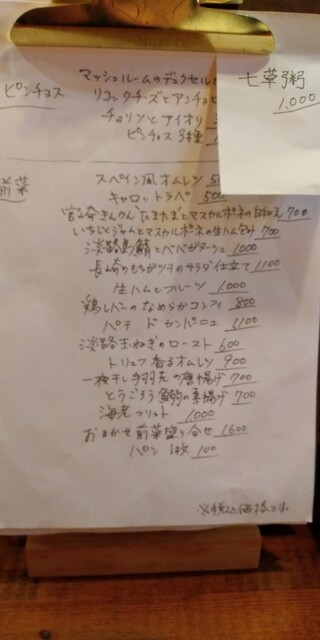 ピンチョス
マッシュルームのデュクセルと
リコッタチーズとアンチョビ
チョリソとアイオリ
ピンチョス3種
七草粥
1.000
前菜
スペイン風オムレツ 500
キャロットラペ 500
宮崎きんかん たまたまとマスカルポーネの 700
いちじくジャムとマスカルポーネの生ハム包み 700
淡路島鯖とベベがダーシュ 1000
長崎のもちがつおのサラダ仕立て 1100
生ハムとフルーツ 1.000
鶏レバーのなめらかコンフィ 800
パテ ド カンパーニュ 1100
淡路玉ねぎのロースト 600
トリュフ香るオムレツ 900
一夜干し手羽先の唐揚げ 700
とうごろう鰯の素揚げ 700
海老フリット 1000
おまかせ前菜盛り合せ 1600
パン 1枚 100
※税込価格です。